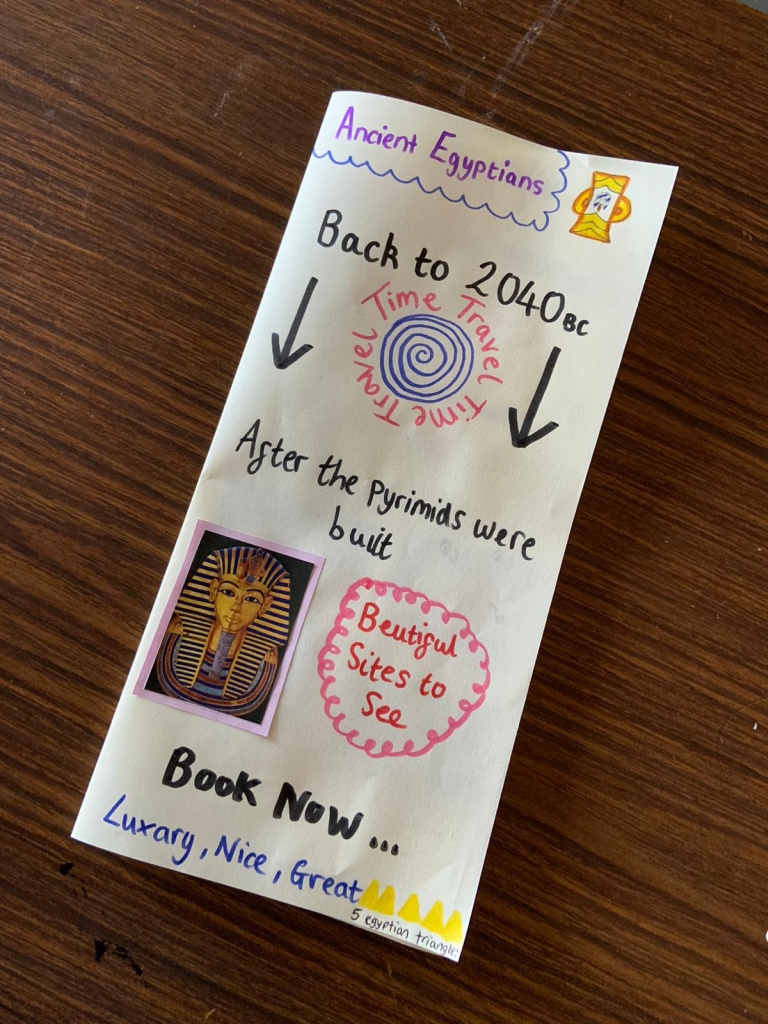 Ancient Egyptians
Back to 2040BC
Time Travel Time Travel
After the Pyrimids were
built
Beutiful
Sites to
See
Book Now...
Luxary, Nice, Great
5 egyptian triangles